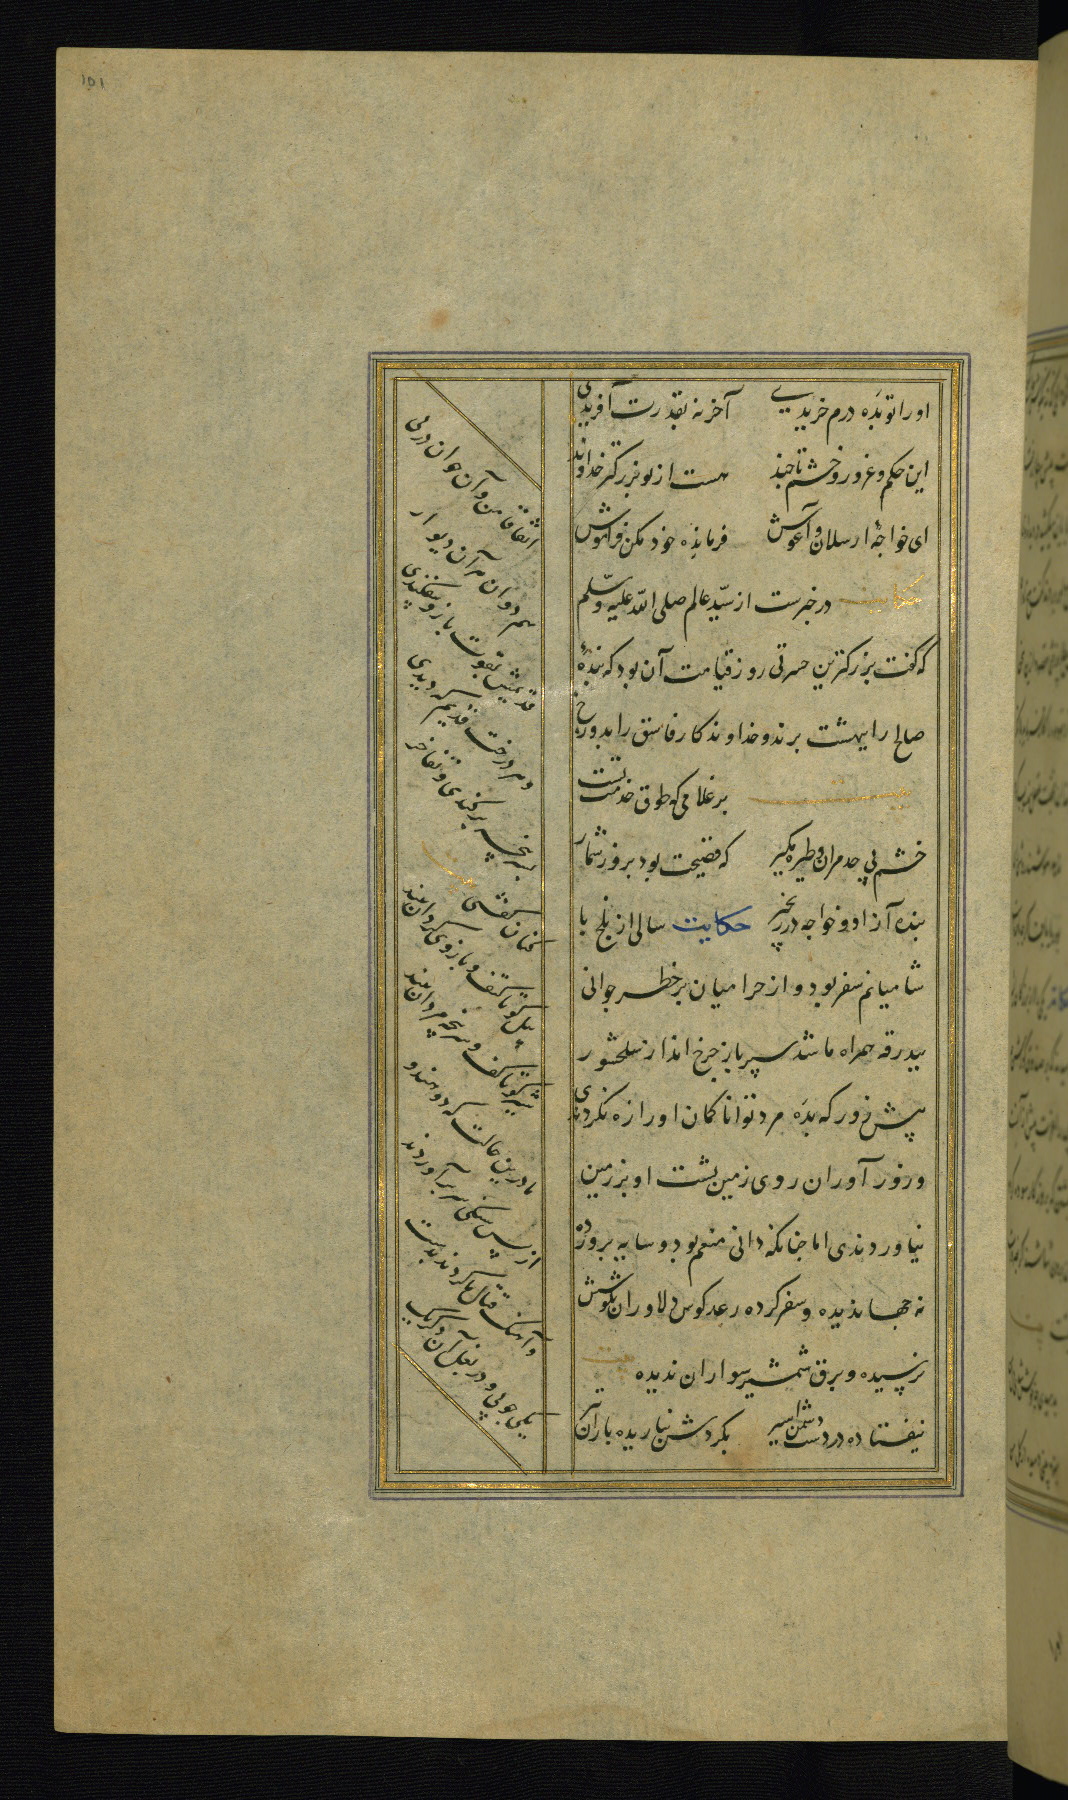 ۱۵۱
او را تو بده درم خریدی آخر نه بقدرت آفریدی
این حکم و غرور و خشم تا چند هست از تو بزرکتر خداوند
ای خواجهٔ ارسلان و آغوش فرمانده خود مکن فراموش
حکایت در خبرست از سیّد عالم صلی اللّه علیه و سلّم
که گفت بزرکترین حسرتی روز قیامت آن بود که بندهٔ
صالح را ببهشت برند و خداوندکار فاسق را بدوزخ
بر غلامی که طوق خدمت تست
خشم بی حد مران و طیره مگیر که فضیحت بود بروز شمار
بنده آزاد و خواجه در زنجیر حکایت سالی از بلخ با
شامیانم سفر بود و از حرامیان پر خطر جوانی
ببدرقه همراه ما شد سپر باز چرخ انداز سلحشور
پیش زور که بده مرد توانا کمان او را زه نکردندی
و زور آوران روی زمین پشت او بر زمین
نیاوردندی اما چنانکه دانی منعم بود و سایه پرورده
نه جهاندیده و سفر کرده رعد کوس دلاوران بگوشش
نرسیده و برق شمشیر سواران ندیده بیت
نیفتاده در دست دشمن اسیر بگردش نباریده باران تیر
اتفاقا من و آن جوان در پی
هم دوان هر آن دیوار
قدیمش بقوت بازو بیفکندی
و هر درخت قدیم که دیدی
بسر پنجه برکندی و تفاخر
کنان گفتی بیت
پیل کو تا کتف و بازوی گردان بیند
شیر کو تا کف و سر پنجه مردان بیند
ما درین حالت که دو هندو
از پس سنگی سر برآوردند
و آهنگ قتال ما کردند بدست
یکی چوبی و در بغل آن دیگر